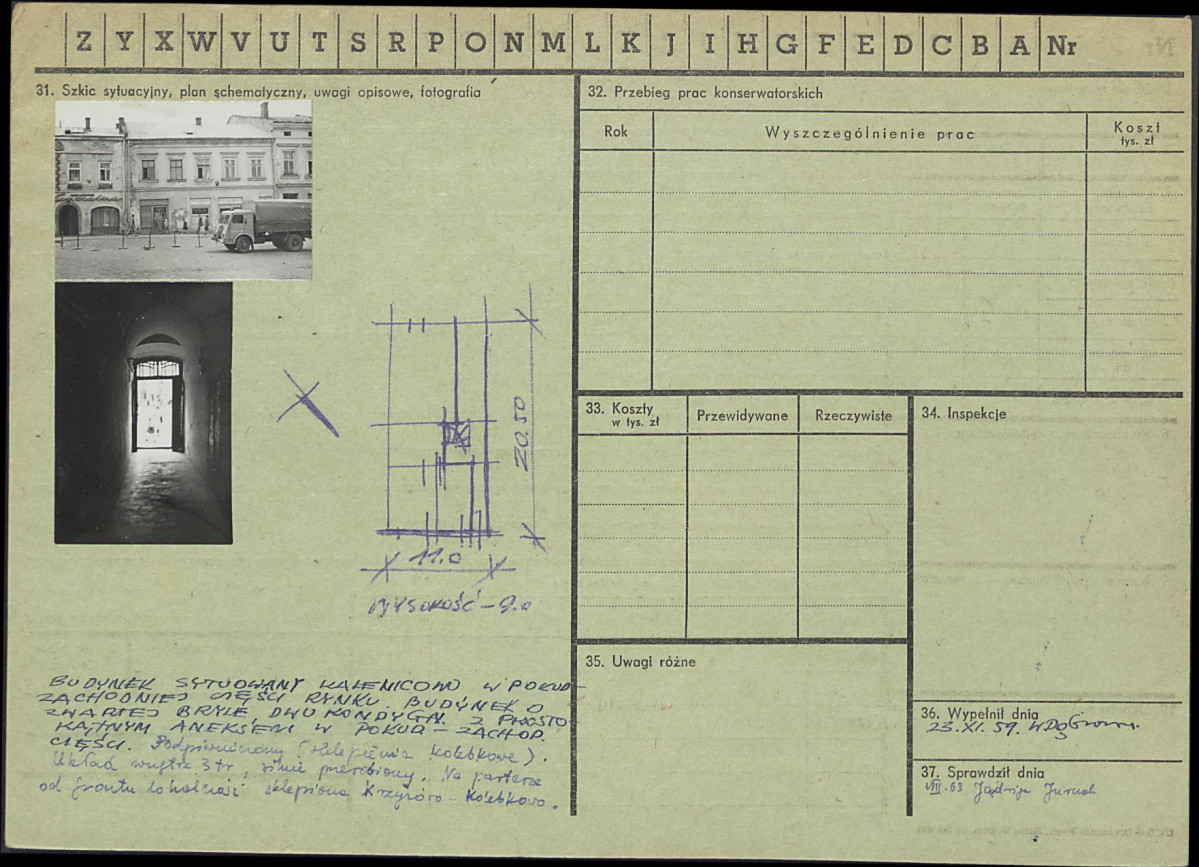 Z Y X W V U T S R P O N M L K J I H G F E D C B A Nr
31. Szkic sytuacyjny, plan schematyczny, uwagi opisowe, fotografia
20.50
11.0
WYSOKOŚĆ – 9.0
BUDYNEK SYTUOWANY KALENICOWO W POŁUD-
ZACHODNIEJ CZĘŚCI RYNKU. BUDYNEK O
ZWARTEJ BRYLE, DWUKONDYGN. Z PROSTO-
KĄTNYM ANEKSEM W POŁUD – ZACHOD.
CZĘŚCI. Podpiwniczony (sklepienia kolebkowe).
Układ wnętrz 3 tr, silnie przerobiony. Na parterze
od frontu sklepiona krzyżowo – kolebkowo.
32. Przebieg prac konserwatorskich
Rok
Wyszczególnienie prac
Koszt
tys. zł
33. Koszty
w tys. zł
Przewidywane
Rzeczywiste
34. Inspekcje
35. Uwagi różne
36. Wypełnił dnia
23.XI.59.
37. Sprawdził dnia
VIII.63